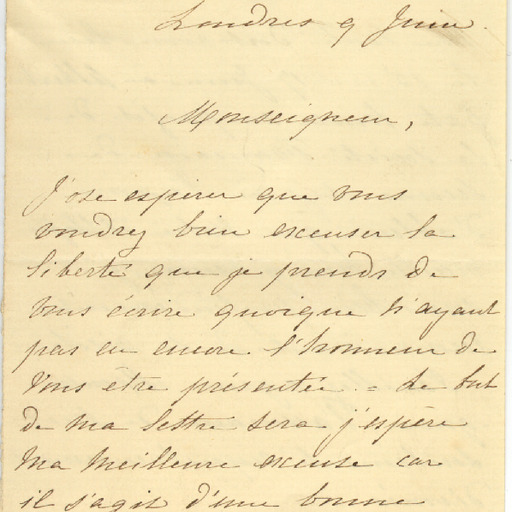 Londres 9 Juin.
Monseigneur,
J'ose espérer que vous
voudrez bien excuser la
liberté que je prends de
vous écrire quoique n'ayant
pas eu encore l'honneur de
vous être présentée. = Le but
de ma lettre sera j'espère
ma meilleure excuse car
il s'agit d'une bonne